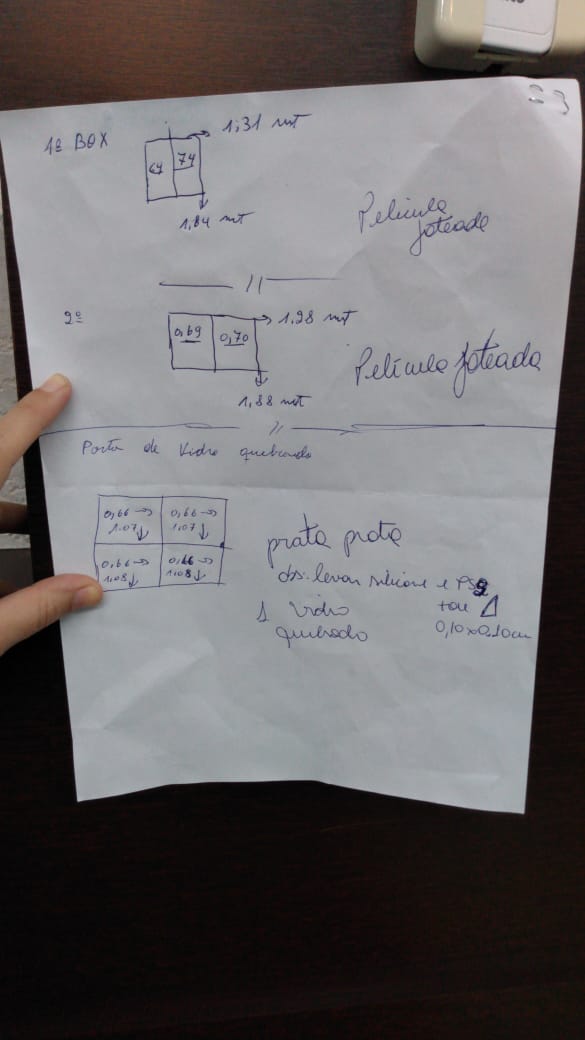 53
1º BOX
1,31 mt
64 74
1,84 mt
Pelicula
foteada
2º
0,69 0,70
1,28 mt
1,88 mt
Película foteada
Porta de Vidro quebrando
0,66 0,66
1.07 1,07
0,66 0,66
1.08 1,08
prata prata
obs: levar silicone e
1 Vidro
quebrado
0,10x0,10cm